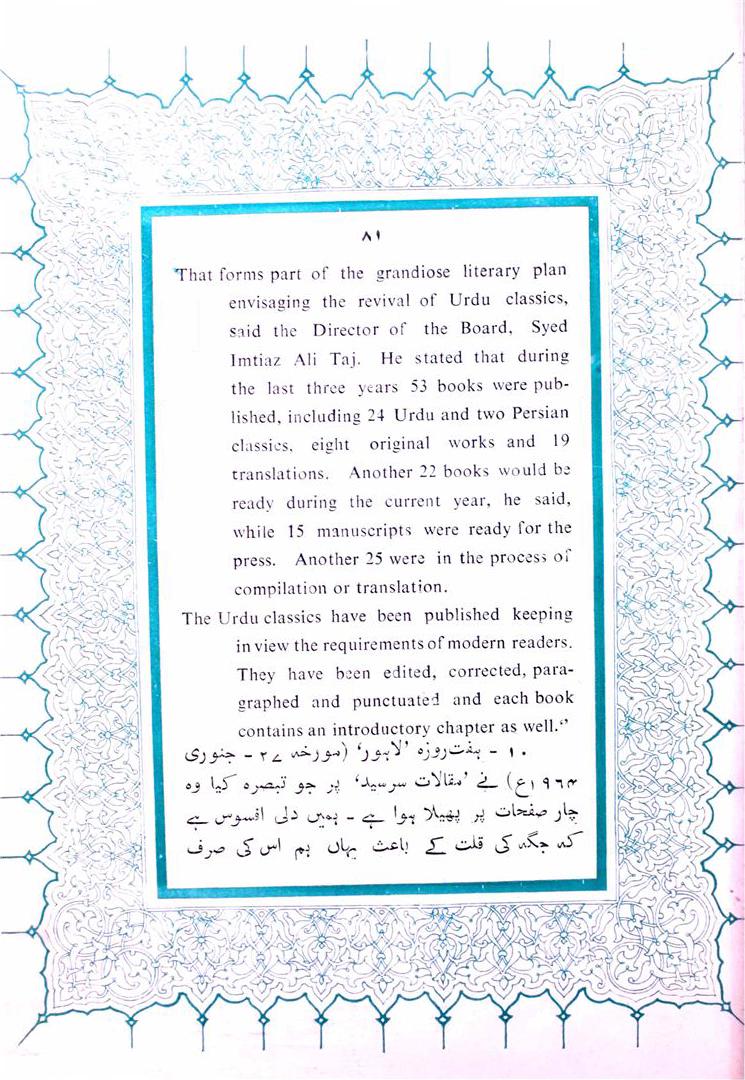 ۸۱
"That forms part of the grandiose literary plan
envisaging the revival of Urdu classics,
said the Director of the Board, Syed
Imtiaz Ali Taj. He stated that during
the last three years 53 books were pub-
lished, including 24 Urdu and two Persian
classics, eight original works and 19
translations. Another 22 books would be
ready during the current year, he said,
while 15 manuscripts were ready for the
press. Another 25 were in the process of
compilation or translation.
The Urdu classics have been published keeping
in view the requirements of modern readers.
They have been edited, corrected, para-
graphed and punctuated and each book
contains an introductory chapter as well.“
۱۰ - ہفت روزہ ’لاہور‘ (مورخہ ۲۷ - جنوری
۱۹۶۴ع) نے ’مقالات سرسید‘ پر جو تبصرہ کیا وہ
چار صفحات پر پھیلا ہوا ہے - ہمیں دلی افسوس ہے
کہ جگہ کی قلت کے باعث یہاں ہم اس کی صرف